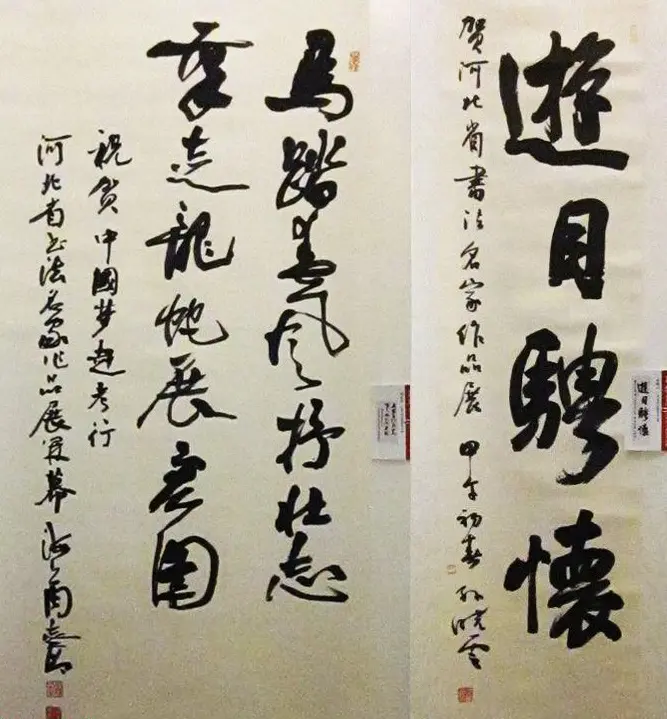 遊目騁懷
賀河北省書法名家作品展 甲午初春 孫曉雲
遊目騁懷
馬踏春風抒壯志
筆走龍蛇展宏圖
祝賀中國夢趕考行
河北省书法名家作品展開幕 周志高